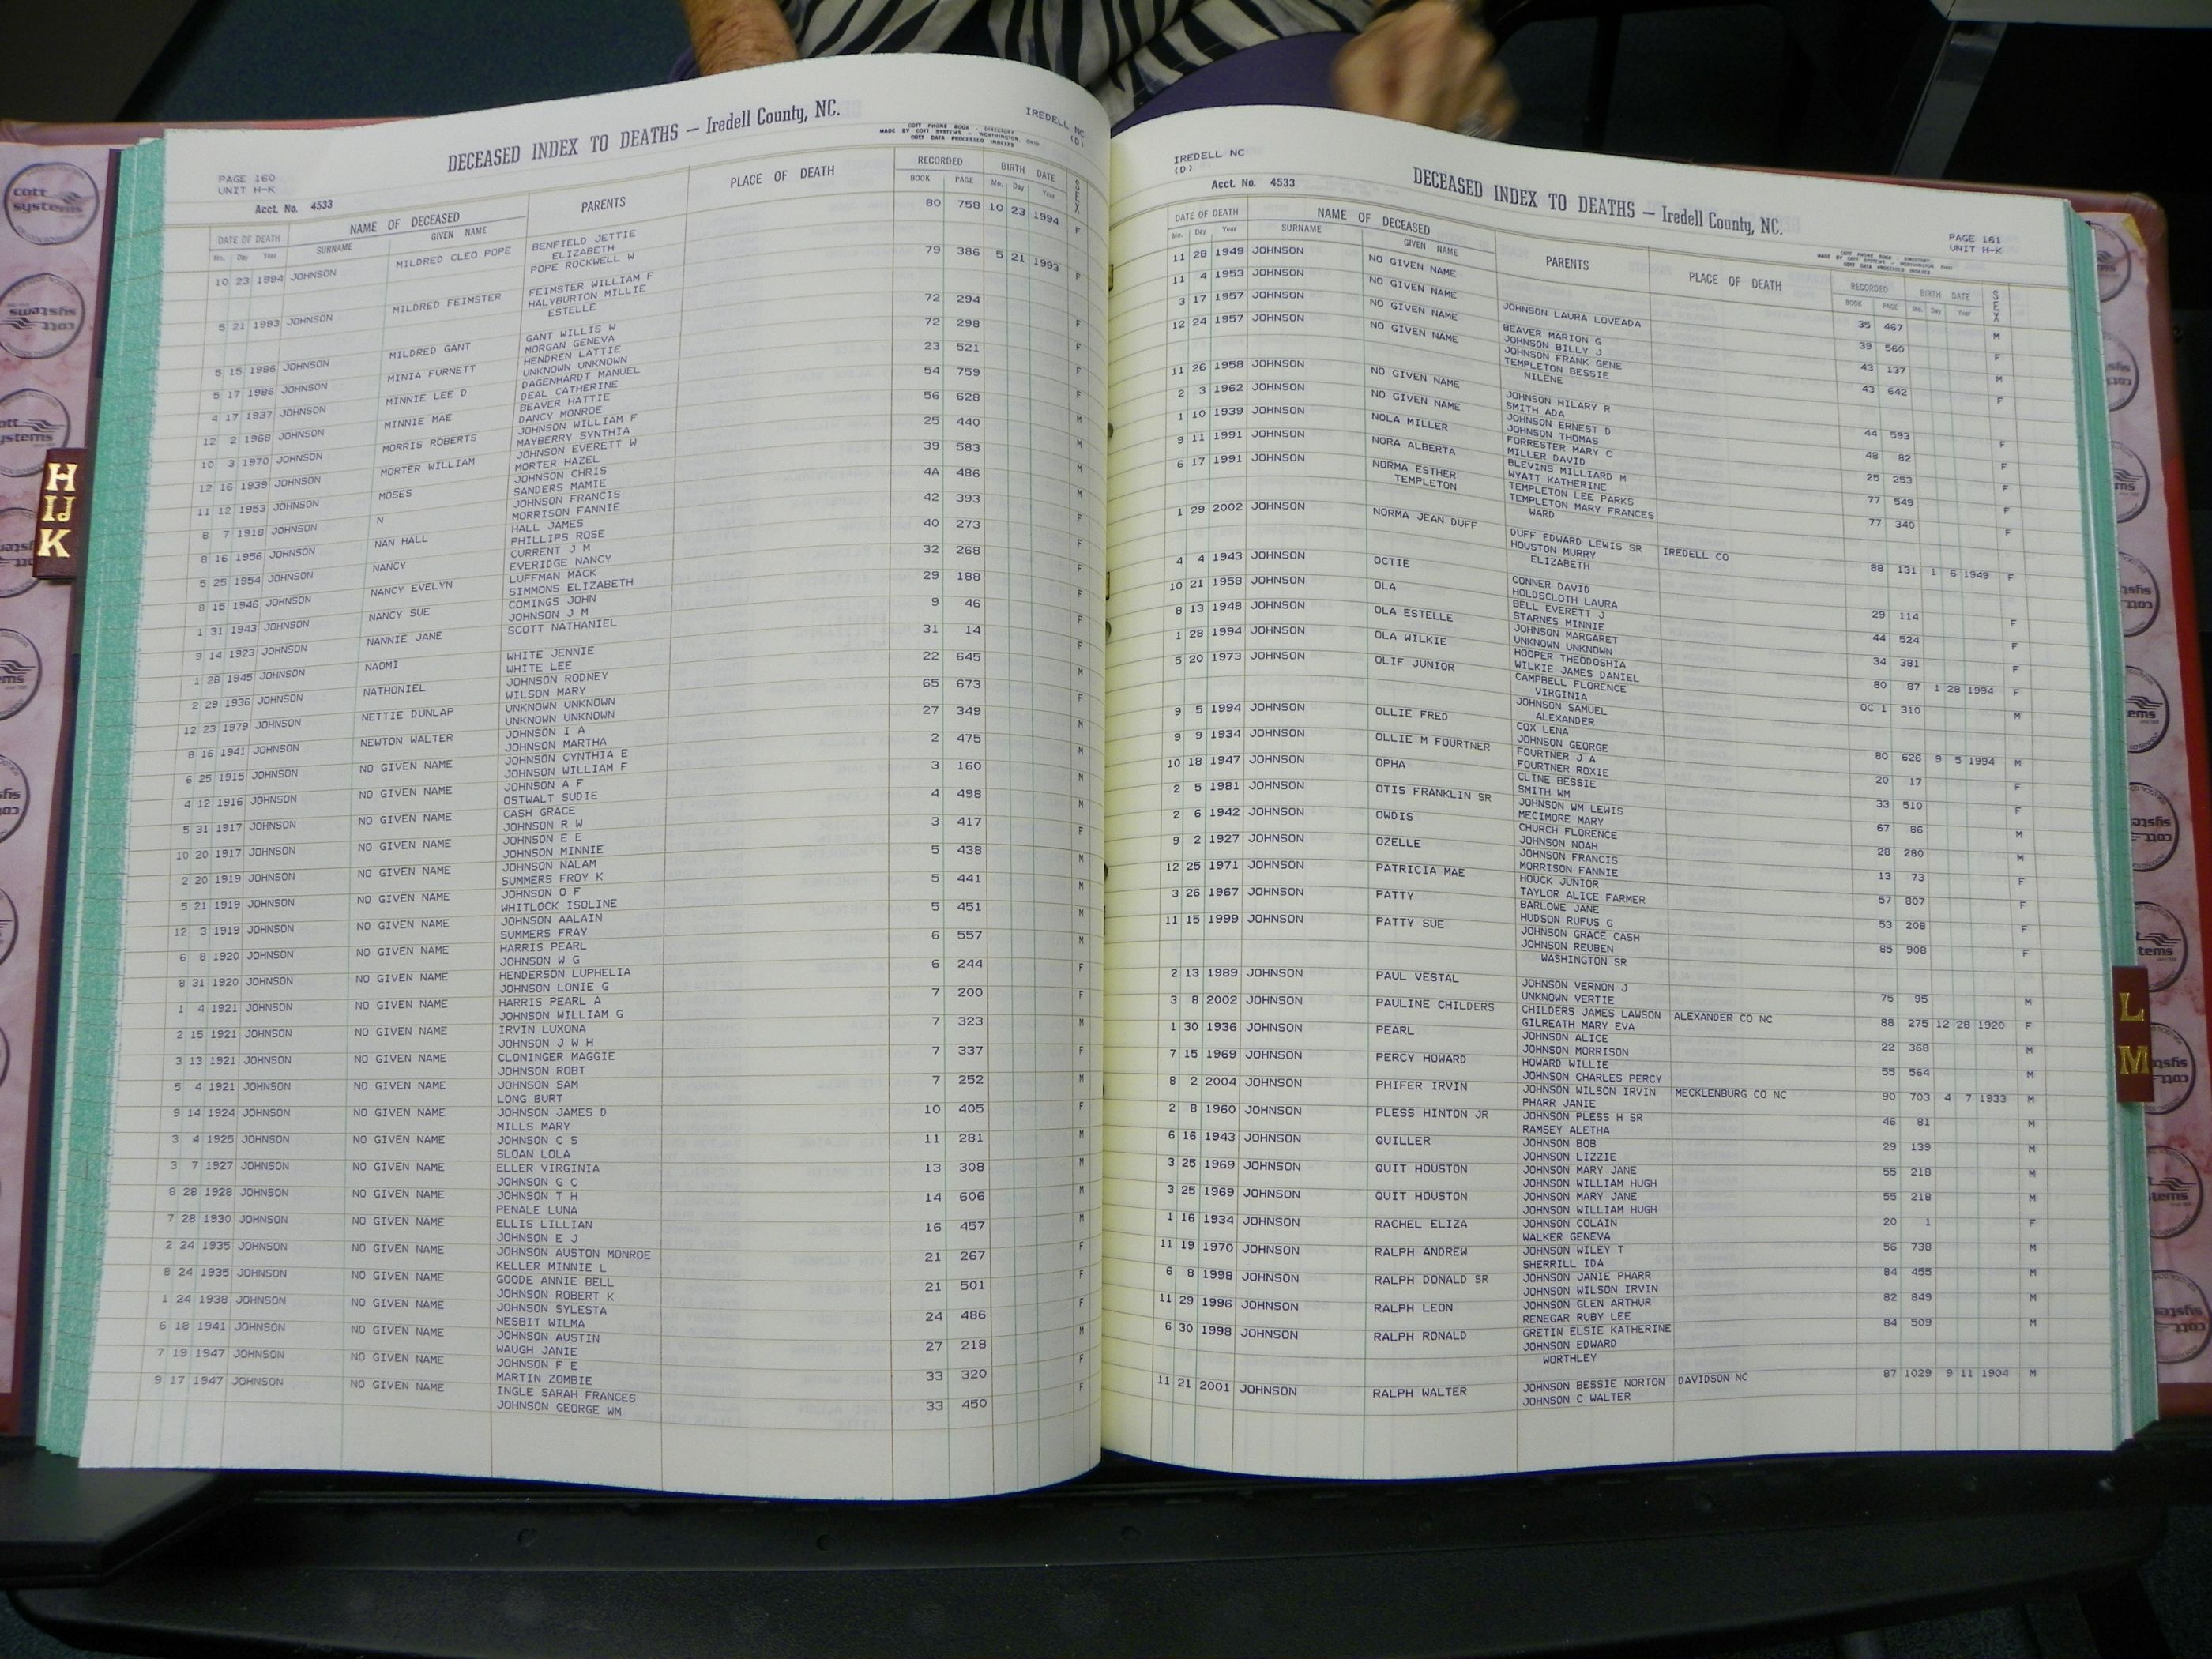 DECEASED INDEX TO DEATHS — Iredell County, NC.
IREDELL NC
(D)
COTT PHONE BOOK - DIRECTORY
MADE BY COTT SYSTEMS - WORTHINGTON, OHIO
COTT DATA PROCESSED INDEXES
PAGE 160
UNIT H-K
Acct. No. 4533
DATE OF DEATH NAME OF DECEASED PARENTS PLACE OF DEATH RECORDED BIRTH DATE SEX
Mo. Day Year SURNAME GIVEN NAME BOOK PAGE Mo. Day Year
10 23 1994 JOHNSON MILDRED CLEO POPE BENFIELD JETTIE 80 758 10 23 1994 F
ELIZABETH
POPE ROCKWELL W
5 21 1993 JOHNSON MILDRED FEIMSTER FEIMSTER WILLIAM F 79 386 5 21 1993 F
HALYBURTON MILLIE
ESTELLE
5 15 1986 JOHNSON MILDRED GANT GANT WILLIS W 72 294 F
MORGAN GENEVA
5 17 1986 JOHNSON MINIA FURNETT HENDREN LATTIE 72 298 F
UNKNOWN UNKNOWN
4 17 1937 JOHNSON MINNIE LEE D DAGENHARDT MANUEL 23 521 F
DEAL CATHERINE
12 2 1968 JOHNSON MINNIE MAE BEAVER HATTIE 54 759 F
DANCY MONROE
10 3 1970 JOHNSON MORRIS ROBERTS JOHNSON WILLIAM F 56 628 M
MAYBERRY SYNTHIA
12 16 1939 JOHNSON MORTER WILLIAM JOHNSON EVERETT W 25 440 M
MORTER HAZEL
11 12 1953 JOHNSON MOSES JOHNSON CHRIS 39 583 M
SANDERS MAMIE
8 7 1918 JOHNSON N JOHNSON FRANCIS 4A 486 F
MORRISON FANNIE
8 16 1956 JOHNSON NAN HALL HALL JAMES 42 393 F
PHILLIPS ROSE
5 25 1954 JOHNSON NANCY CURRENT J M 40 273 F
EVERIDGE NANCY
8 15 1946 JOHNSON NANCY EVELYN LUFFMAN MACK 32 268 F
SIMMONS ELIZABETH
1 31 1943 JOHNSON NANCY SUE COMINGS JOHN 29 188 F
JOHNSON J M
9 14 1923 JOHNSON NANNIE JANE SCOTT NATHANIEL 9 46 F
1 28 1945 JOHNSON NAOMI WHITE JENNIE 31 14 F
WHITE LEE
2 29 1936 JOHNSON NATHONIEL JOHNSON RODNEY 22 645 M
WILSON MARY
12 23 1979 JOHNSON NETTIE DUNLAP UNKNOWN UNKNOWN 65 673 F
UNKNOWN UNKNOWN
8 16 1941 JOHNSON NEWTON WALTER JOHNSON I A 27 349 M
JOHNSON MARTHA
6 25 1915 JOHNSON NO GIVEN NAME JOHNSON CYNTHIA E 2 475 M
JOHNSON WILLIAM F
4 12 1916 JOHNSON NO GIVEN NAME JOHNSON A F 3 160 M
OSTWALT SUDIE
5 31 1917 JOHNSON NO GIVEN NAME CASH GRACE 4 498 M
JOHNSON R W
10 20 1917 JOHNSON NO GIVEN NAME JOHNSON E E 3 417 F
JOHNSON MINNIE
2 20 1919 JOHNSON NO GIVEN NAME JOHNSON NALAM 5 438 M
SUMMERS FROY K
5 21 1919 JOHNSON NO GIVEN NAME JOHNSON O F 5 441 M
WHITLOCK ISOLINE
12 3 1919 JOHNSON NO GIVEN NAME JOHNSON AALAIN 5 451 M
SUMMERS FRAY
6 8 1920 JOHNSON NO GIVEN NAME HARRIS PEARL 6 557 M
JOHNSON W G
8 31 1920 JOHNSON NO GIVEN NAME HENDERSON LUPHELIA 6 244 F
JOHNSON LONIE G
1 4 1921 JOHNSON NO GIVEN NAME HARRIS PEARL A 7 200 F
JOHNSON WILLIAM G
2 15 1921 JOHNSON NO GIVEN NAME IRVIN LUXONA 7 323 M
JOHNSON J W H
3 13 1921 JOHNSON NO GIVEN NAME CLONINGER MAGGIE 7 337 F
JOHNSON ROBT
5 4 1921 JOHNSON NO GIVEN NAME JOHNSON SAM 7 252 M
LONG BURT
9 14 1924 JOHNSON NO GIVEN NAME JOHNSON JAMES D 10 405 F
MILLS MARY
3 4 1925 JOHNSON NO GIVEN NAME JOHNSON C S 11 281 M
SLOAN LOLA
3 7 1927 JOHNSON NO GIVEN NAME ELLER VIRGINIA 13 308 M
JOHNSON G C
8 28 1928 JOHNSON NO GIVEN NAME JOHNSON T H 14 606 M
PENALE LUNA
7 28 1930 JOHNSON NO GIVEN NAME ELLIS LILLIAN 16 457 M
JOHNSON E J
2 24 1935 JOHNSON NO GIVEN NAME JOHNSON AUSTON MONROE 21 267 F
KELLER MINNIE L
8 24 1935 JOHNSON NO GIVEN NAME GOODE ANNIE BELL 21 501 F
JOHNSON ROBERT K
1 24 1938 JOHNSON NO GIVEN NAME JOHNSON SYLESTA 24 486 F
NESBIT WILMA
6 18 1941 JOHNSON NO GIVEN NAME JOHNSON AUSTIN 27 218 M
WAUGH JANIE
7 19 1947 JOHNSON NO GIVEN NAME JOHNSON F E 33 320 F
MARTIN ZOMBIE
9 17 1947 JOHNSON NO GIVEN NAME INGLE SARAH FRANCES 33 450 F
JOHNSON GEORGE WM
IREDELL NC
(D)
Acct. No. 4533
DECEASED INDEX TO DEATHS — Iredell County, NC.
PAGE 161
UNIT H-K
COTT PHONE BOOK - DIRECTORY
MADE BY COTT SYSTEMS - WORTHINGTON, OHIO
COTT DATA PROCESSED INDEXES
DATE OF DEATH NAME OF DECEASED PARENTS PLACE OF DEATH RECORDED BIRTH DATE SEX
Mo. Day Year SURNAME GIVEN NAME BOOK PAGE Mo. Day Year
11 28 1949 JOHNSON NO GIVEN NAME JOHNSON LAURA LOVEADA 35 467 M
11 4 1953 JOHNSON NO GIVEN NAME BEAVER MARION G 39 560 F
JOHNSON BILLY J
3 17 1957 JOHNSON NO GIVEN NAME JOHNSON FRANK GENE 43 137 M
TEMPLETON BESSIE
NILENE
12 24 1957 JOHNSON NO GIVEN NAME JOHNSON HILARY R 43 642 F
SMITH ADA
11 26 1958 JOHNSON NO GIVEN NAME JOHNSON ERNEST D 44 593 F
2 3 1962 JOHNSON NO GIVEN NAME JOHNSON THOMAS 48 82 F
FORRESTER MARY C
1 10 1939 JOHNSON NOLA MILLER MILLER DAVID 25 253 F
9 11 1991 JOHNSON NORA ALBERTA BLEVINS MILLIARD M 77 549 F
WYATT KATHERINE
6 17 1991 JOHNSON NORMA ESTHER TEMPLETON LEE PARKS 77 340 F
TEMPLETON TEMPLETON MARY FRANCES
WARD
1 29 2002 JOHNSON NORMA JEAN DUFF DUFF EDWARD LEWIS SR IREDELL CO 88 131 1 6 1949 F
HOUSTON MURRY
ELIZABETH
4 4 1943 JOHNSON OCTIE CONNER DAVID 29 114 F
HOLDSCLOTH LAURA
10 21 1958 JOHNSON OLA BELL EVERETT J 44 524 F
STARNES MINNIE
8 13 1948 JOHNSON OLA ESTELLE JOHNSON MARGARET 34 381 F
UNKNOWN UNKNOWN
1 28 1994 JOHNSON OLA WILKIE HOOPER THEODOSHIA 80 87 1 28 1994 F
WILKIE JAMES DANIEL
5 20 1973 JOHNSON OLIF JUNIOR CAMPBELL FLORENCE OC 1 310 M
VIRGINIA
JOHNSON SAMUEL
ALEXANDER
9 5 1994 JOHNSON OLLIE FRED COX LENA 80 626 9 5 1994 M
JOHNSON GEORGE
9 9 1934 JOHNSON OLLIE M FOURTNER FOURTNER J A 20 17 F
FOURTNER ROXIE
10 18 1947 JOHNSON OPHA CLINE BESSIE 33 510 F
SMITH WM
2 5 1981 JOHNSON OTIS FRANKLIN SR JOHNSON WM LEWIS 67 86 M
MECIMORE MARY
2 6 1942 JOHNSON OWDIS CHURCH FLORENCE 28 280 M
JOHNSON NOAH
9 2 1927 JOHNSON OZELLE JOHNSON FRANCIS 13 73 F
MORRISON FANNIE
12 25 1971 JOHNSON PATRICIA MAE HOUCK JUNIOR 57 807 F
TAYLOR ALICE FARMER
3 26 1967 JOHNSON PATTY BARLOWE JANE 53 208 F
HUDSON RUFUS G
11 15 1999 JOHNSON PATTY SUE JOHNSON GRACE CASH 85 908 F
JOHNSON REUBEN
WASHINGTON SR
2 13 1989 JOHNSON PAUL VESTAL JOHNSON VERNON J 75 95 M
UNKNOWN VERTIE
3 8 2002 JOHNSON PAULINE CHILDERS CHILDERS JAMES LAWSON ALEXANDER CO NC 88 275 12 28 1920 F
GILREATH MARY EVA
1 30 1936 JOHNSON PEARL JOHNSON ALICE 22 368 M
JOHNSON MORRISON
7 15 1969 JOHNSON PERCY HOWARD HOWARD WILLIE 55 564 M
JOHNSON CHARLES PERCY
8 2 2004 JOHNSON PHIFER IRVIN JOHNSON WILSON IRVIN MECKLENBURG CO NC 90 703 4 7 1933 M
PHARR JANIE
2 8 1960 JOHNSON PLESS HINTON JR JOHNSON PLESS H SR 46 81 M
RAMSEY ALETHA
6 16 1943 JOHNSON QUILLER JOHNSON BOB 29 139 M
JOHNSON LIZZIE
3 25 1969 JOHNSON QUIT HOUSTON JOHNSON MARY JANE 55 218 M
JOHNSON WILLIAM HUGH
3 25 1969 JOHNSON QUIT HOUSTON JOHNSON MARY JANE 55 218 M
JOHNSON WILLIAM HUGH
1 16 1934 JOHNSON RACHEL ELIZA JOHNSON COLAIN 20 1 F
WALKER GENEVA
11 19 1970 JOHNSON RALPH ANDREW JOHNSON WILEY T 56 738 M
SHERRILL IDA
6 8 1998 JOHNSON RALPH DONALD SR JOHNSON JANIE PHARR 84 455 M
JOHNSON WILSON IRVIN
11 29 1996 JOHNSON RALPH LEON JOHNSON GLEN ARTHUR 82 849 M
RENEGAR RUBY LEE
6 30 1998 JOHNSON RALPH RONALD GRETIN ELSIE KATHERINE 84 509 M
JOHNSON EDWARD
WORTHLEY
11 21 2001 JOHNSON RALPH WALTER JOHNSON BESSIE NORTON DAVIDSON NC 87 1029 9 11 1904 M
JOHNSON C WALTER
H
IJ
K
L
M
cott
systems